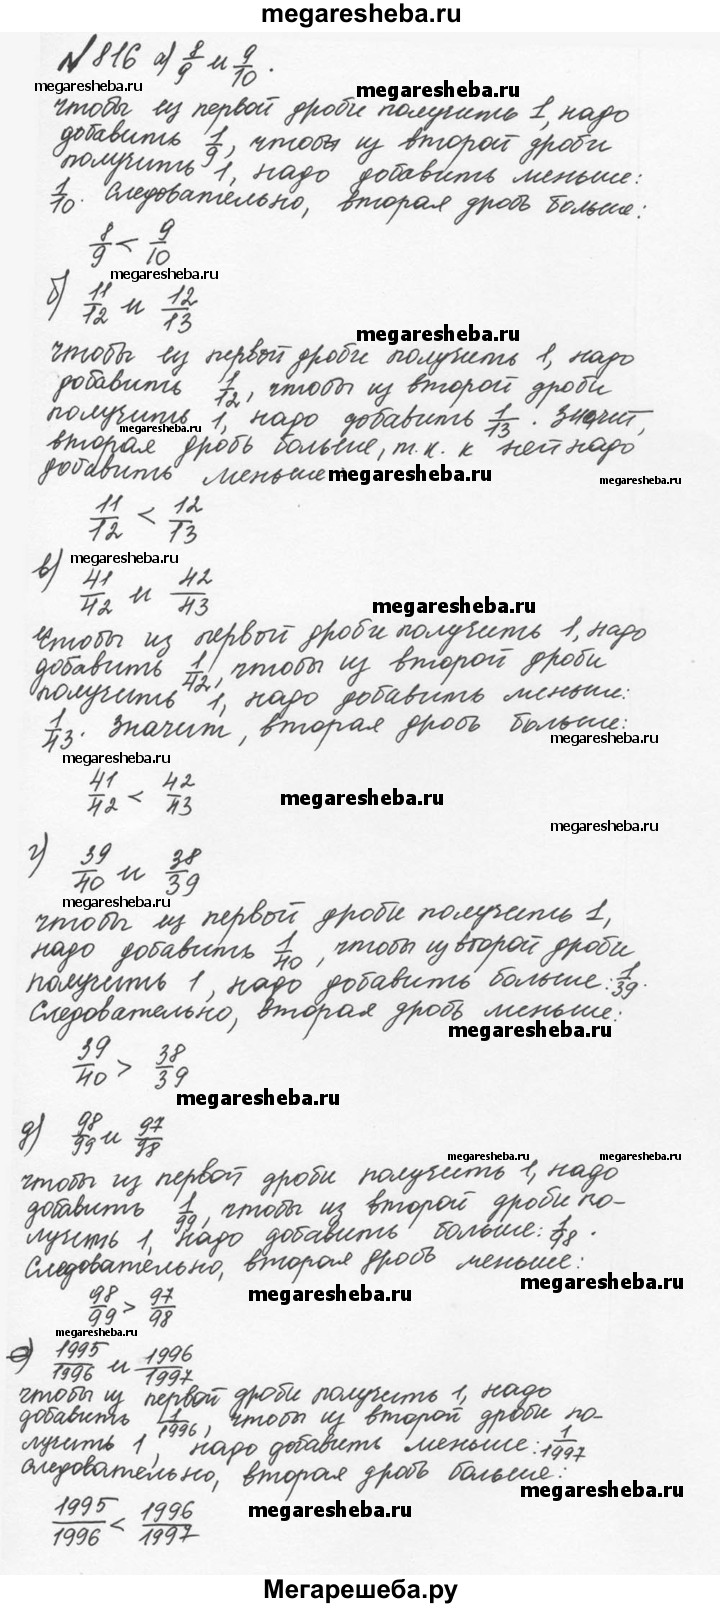 megaresheba.ru
№ 816 а) 8/9 и 9/10.
megaresheba.ru
megaresheba.ru
чтобы из первой дроби получить 1, надо
добавить 1/9, чтобы из второй дроби
получить 1, надо добавить меньше:
1/10. Следовательно, вторая дробь больше:
8/9 < 9/10
megaresheba.ru
б) 11/12 и 12/13
megaresheba.ru
чтобы из первой дроби получить 1, надо
добавить 1/12, чтобы из второй дроби
получить 1, надо добавить 1/13. Значит,
вторая дробь больше, т.к. к ней надо
добавить меньше
megaresheba.ru
megaresheba.ru
11/12 < 12/13
megaresheba.ru
в) 41/42 и 42/43
megaresheba.ru
Чтобы из первой дроби получить 1, надо
добавить 1/42, чтобы из второй дроби
получить 1, надо добавить меньше:
1/43. Значит, вторая дробь больше:
megaresheba.ru
megaresheba.ru
41/42 < 42/43
megaresheba.ru
megaresheba.ru
г) 39/40 и 38/39
megaresheba.ru
чтобы из первой дроби получить 1,
надо добавить 1/40, чтобы из второй дроби
получить 1, надо добавить больше: 1/39.
Следовательно, вторая дробь меньше:
megaresheba.ru
39/40 > 38/39
megaresheba.ru
д) 98/99 и 97/98
megaresheba.ru
megaresheba.ru
чтобы из первой дроби получить 1, надо
добавить 1/99, чтобы из второй дроби по-
лучить 1, надо добавить больше: 1/98.
Следовательно, вторая дробь меньше:
megaresheba.ru
98/99 > 97/98
megaresheba.ru
megaresheba.ru
е) 1995/1996 и 1996/1997
чтобы из первой дроби получить 1, надо
добавить 1/1996, чтобы из второй дроби по-
лучить 1, надо добавить меньше: 1/1997
Следовательно, вторая дробь больше:
megaresheba.ru
1995/1996 < 1996/1997
megaresheba.ru
Мегарешеба.ру